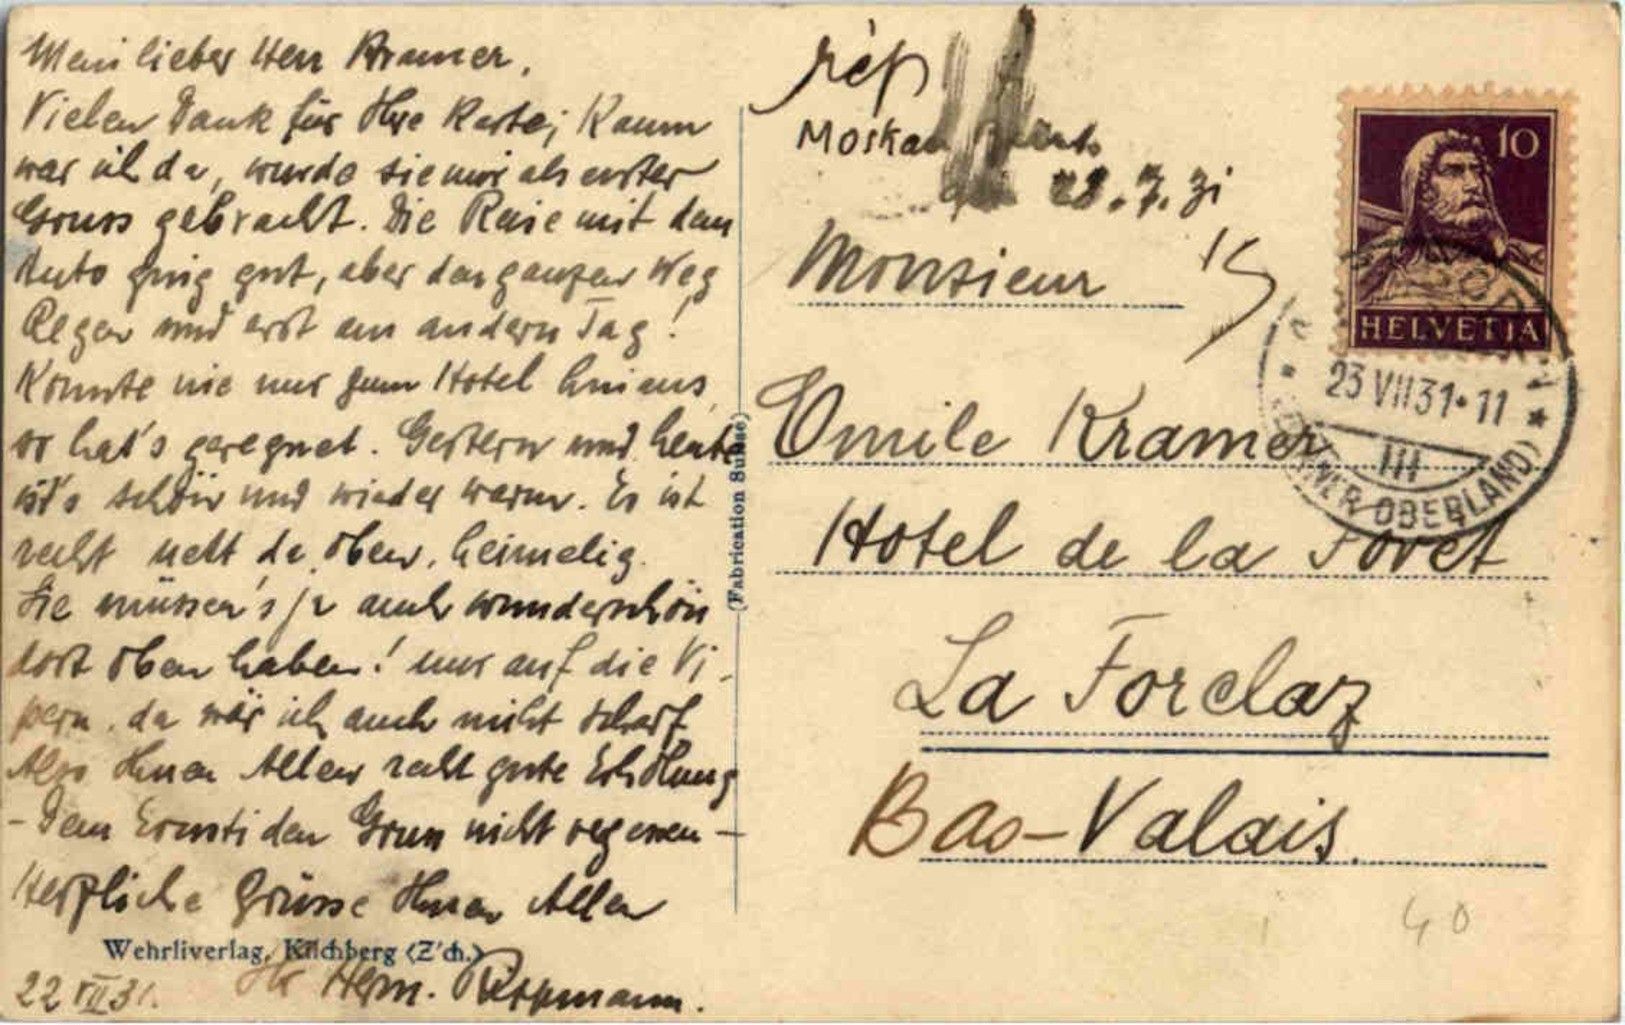 Mein lieber Herr Kramer,
Vielen Dank für Ihre Karte; Kaum
war ich da, wurde sie mir als erster
Gruss gebracht. Die Reise mit dem
Auto ging gut, aber den ganzen Weg
Regen und erst am andern Tag!
Konnte nie nur zum Hotel hinaus,
so hat's geregnet. Gestern und heute
ist's schön und wieder warm. Es ist
recht nett da oben, heimelig.
Sie müssen's ja auch wunderschön
dort oben haben! nur auf die Vi-
pern, da wär ich auch nicht scharf
Also Ihnen Allen recht gute Erholung
- Dem Ernsti den Gruss nicht vergessen -
Herzliche Grüsse Ihnen Allen
Wehrliverlag, Kilchberg (Z'ch.)
Ihr Herm. Rippmann.
22 VII 31.
(Fabrication Suisse)
rép
Moskau
28.7.31
Monsieur
Emile Kramer
Hotel de la Foret
La Forclaz
Bas-Valais.
40
10
HELVETIA
23 VII 31·11
III
(BERNER OBERLAND)